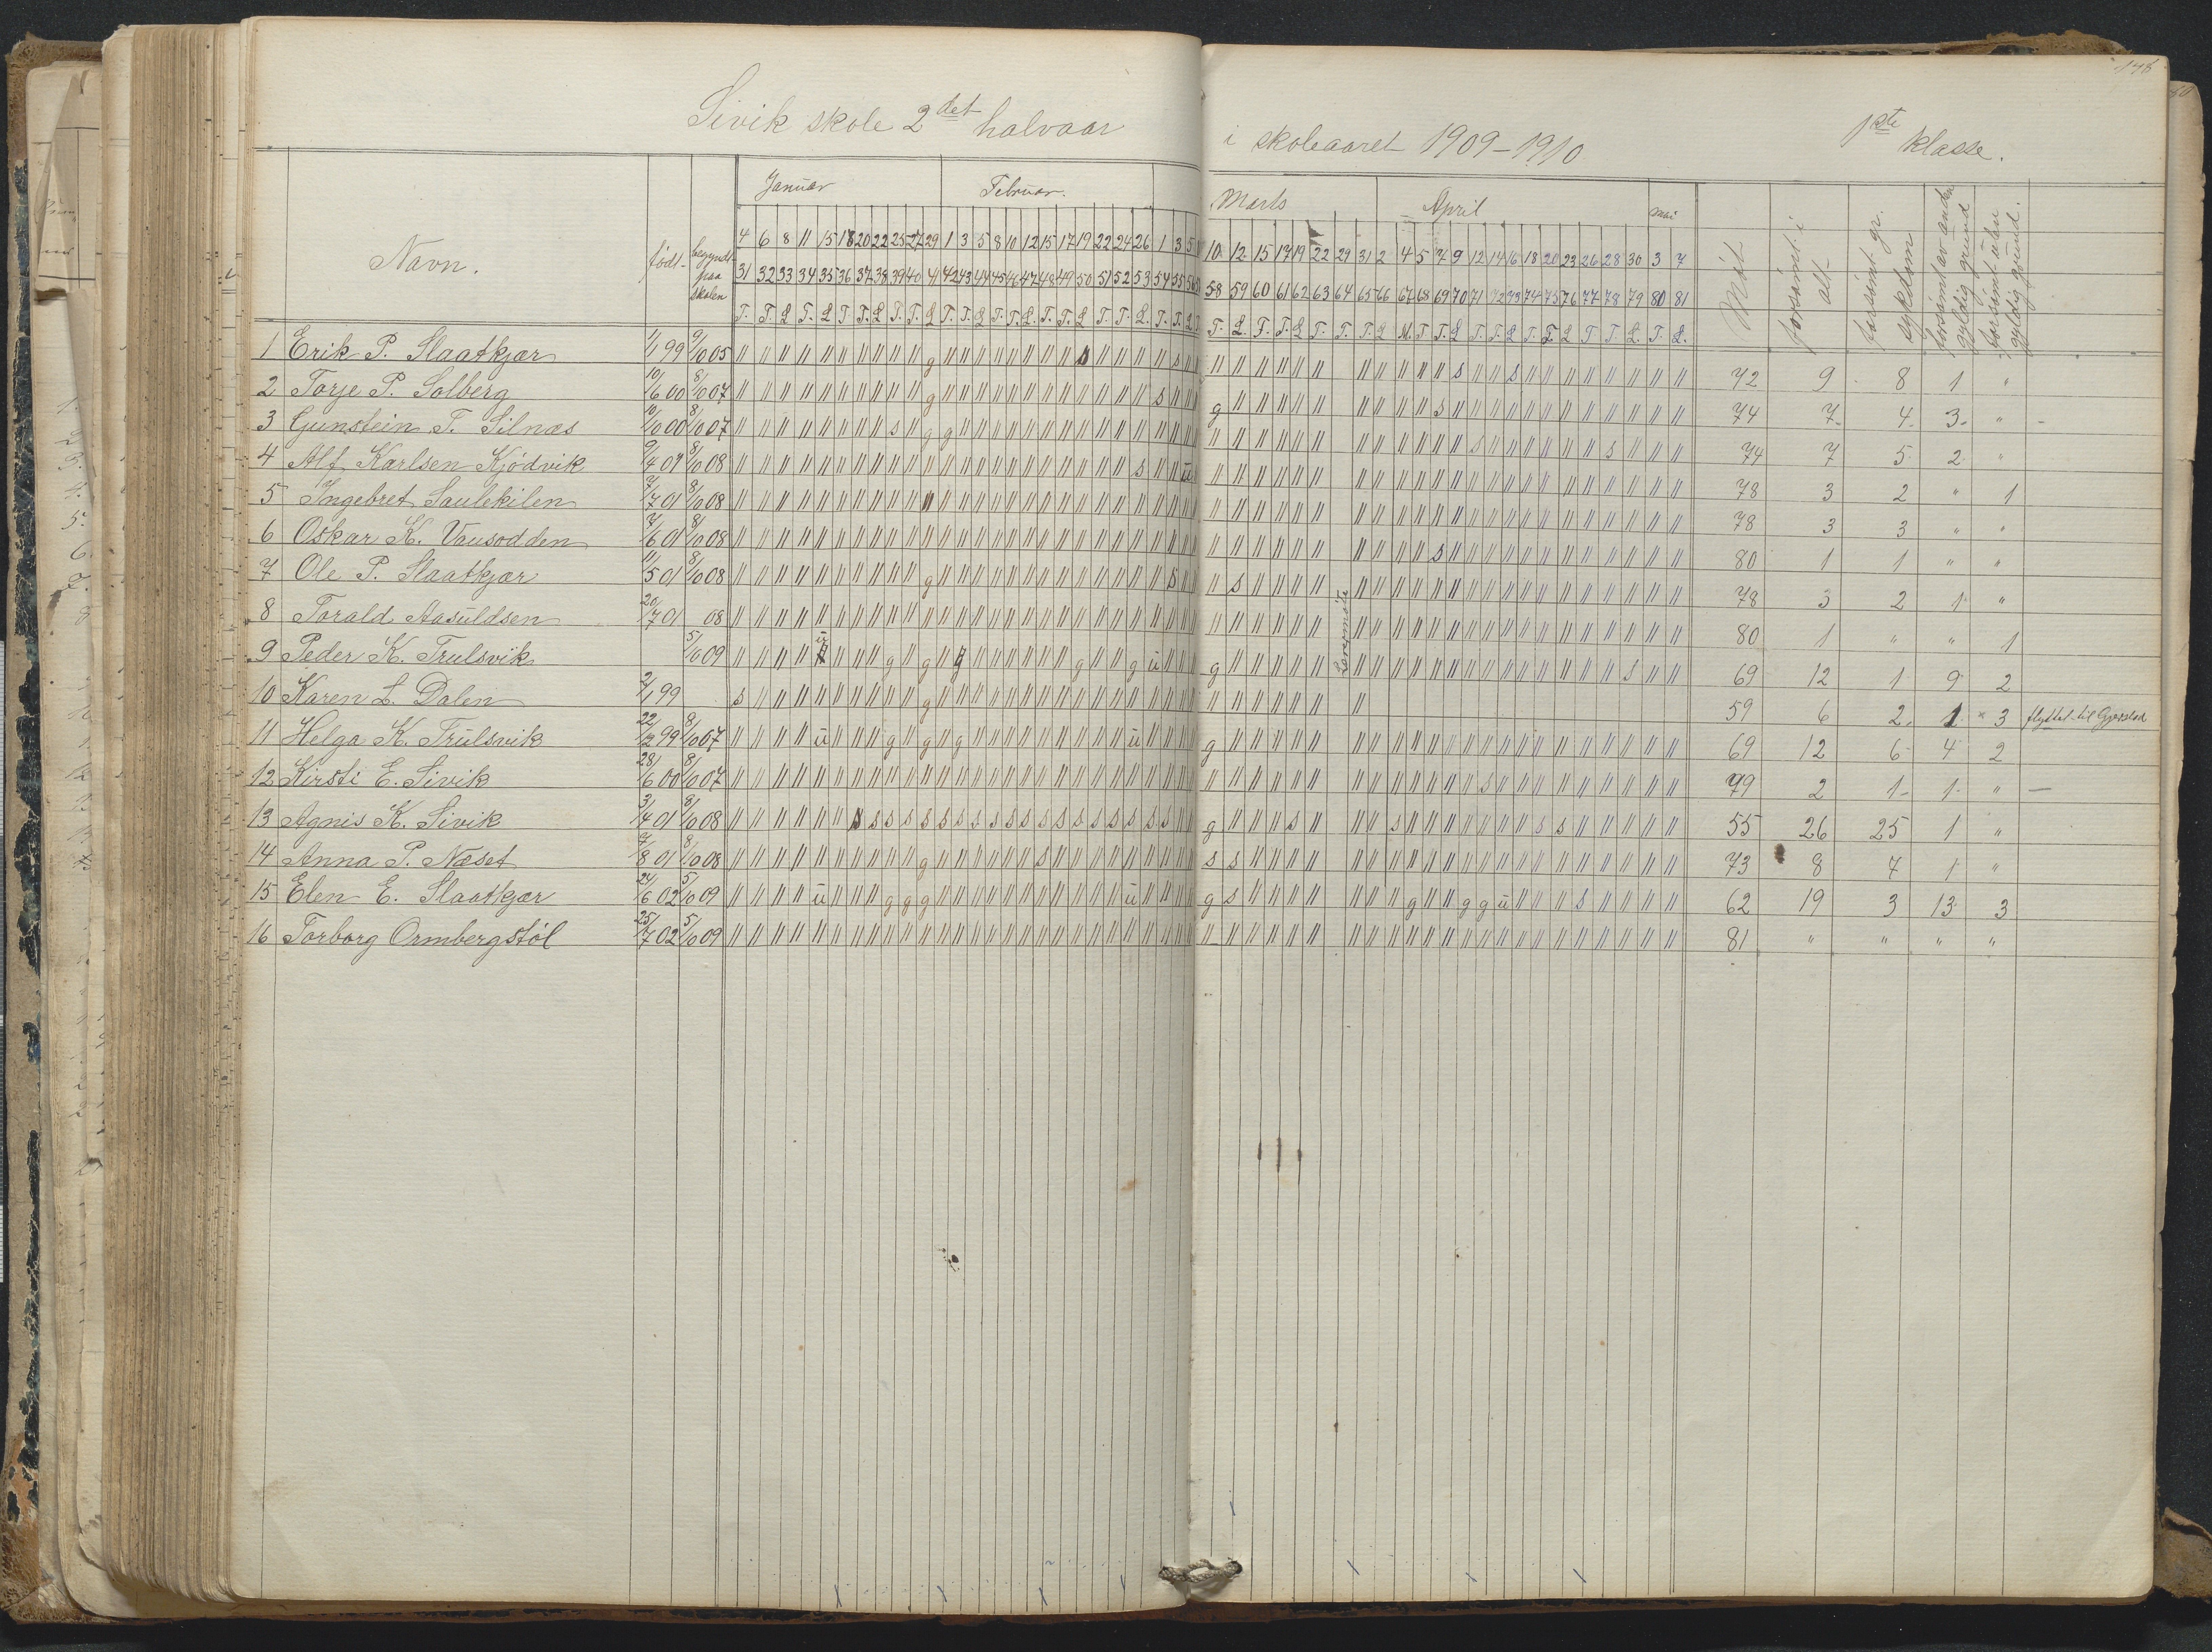 178
Sivik skole 2det halvaar i skoleaaret 1909-1910 1ste klasse.
Januar Februar. Marts April mai
Navn. født begyndt paa skolen Møt forsømt i alt forsømt gr. sykdom forsømt av anden gyldig grund forsømt uten gyldig grund.
4 6 8 11 15 18 20 22 25 27 29 1 3 5 8 10 12 15 17 19 22 24 26 1 3 5 10 12 15 17 19 22 29 31 2 4 5 7 9 12 14 16 18 20 23 26 28 30 3 7
31 32 33 34 35 36 37 38 39 40 41 42 43 44 45 46 47 48 49 50 51 52 53 54 55 56 58 59 60 61 62 63 64 65 66 67 68 69 70 71 72 73 74 75 76 77 78 79 80 81
T. T. L T. L T T. L T. T. L T. T. L T. T. L. T. T. L T. T. L. T. T. L T. L. T. T. L T. T. T. L M. T T. L T. T. L T. T. L T T. L. T. L.
1 Erik P. Slaatkjær 1/1 99 9/10 05 72 9 8 1 "
2 Torje P. Solberg 10/6 00 8/10 07 74 7 4 3 "
3 Gunstein T. Silnæs 10/10 00 8/10 07 74 7 5 2 "
4 Alf Karlsen Kjødvik 9/4 01 8/10 08 78 3 2 " 1
5 Ingebret Saulekilen 7/7 01 8/10 08 78 3 3 " "
6 Oskar K. Vausodden 7/6 01 8/10 08 80 1 1 " "
7 Ole P. Slaatkjær 11/5 01 8/10 08 78 3 2 1 "
8 Torald Aasuldsen 20/7 01 08 80 1 " " 1
9 Peder K. Trulsvik 5/10 09 69 12 1 9 2
10 Karen L. Dalen 2/1 99 59 6 2 1 3 flyttet til Gjerstad
11 Helga K. Trulsvik 22/2 99 8/10 07 69 12 6 4 2
12 Kirsti E. Sivik 28/6 00 8/10 07 79 2 1 1 "
13 Agnis K. Sivik 3/4 01 8/10 08 55 26 25 1 "
14 Anna P. Næset 7/8 01 8/10 08 73 8 7 1 "
15 Elen E. Slaatkjær 24/6 02 5/10 09 62 19 3 13 3
16 Torborg Ormbergstøl 25/7 02 5/10 09 81 " " " "